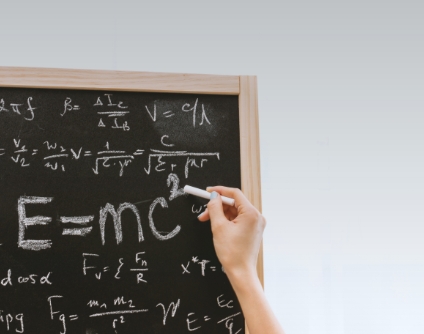 2πf β= ΔI_C/ΔI_B V= c/λ
= v₁/v₂ = w₂/w₁ v = 1/√ε·μ = c/√εᵣμᵣ
E=mc²
d cos α F_v= { F_n/R x*P=
F_g= m₁m₂/r² E = E_c/q